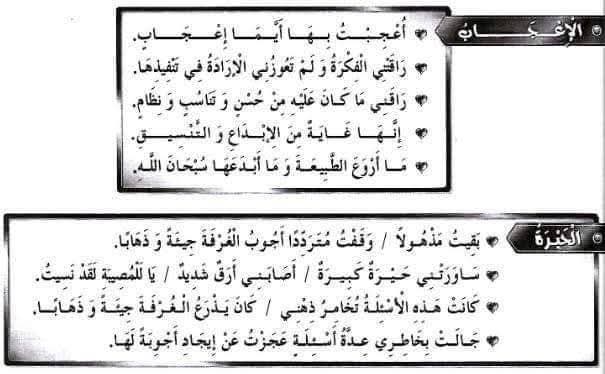 الإِعْجَابُ
أُعْجِبْتُ بِهَا أَيَّمَا إِعْجَابٍ.
رَاقَتْنِي الْفِكْرَةُ وَ لَمْ تَعُوزُنِي الْإِرَادَةُ فِي تَنْفِيذِهَا.
رَاقَنِي مَا كَانَ عَلَيْهِ مِنْ حُسْنٍ وَ تَنَاسُبٍ وَ نِظَامٍ.
إِنَّهَا غَايَةٌ مِنَ الْإِبْدَاعِ وَ التَّنْسِيقِ.
مَا أَرْوَعَ الطَّبِيعَةَ وَ مَا أَبْدَعَهَا سُبْحَانَ اللهِ.
الْحَيْرَةُ
بَقِيتُ مَذْهُولاً / وَقَفْتُ مُتَرَدِّدًا أَجُوبُ الْغُرْفَةَ جِيئَةً وَ ذَهَابًا.
سَاوَرَتْنِي حَيْرَةٌ كَبِيرَةٌ / أَصَابَنِي أَرَقٌ شَدِيدٌ / يَا لَلْمُصِيبَةِ لَقَدْ نَسِيتُ.
كَانَتْ هَذِهِ الْأَسْئِلَةُ تُخَامِرُ ذِهْنِي / كَانَ يَذْرَعُ الْغُرْفَةَ جِيئَةً وَ ذَهَابًا.
جَالَتْ بِخَاطِرِي عِدَّةُ أَسْئِلَةٍ عَجَزْتُ عَنْ إِيجَادِ أَجْوِبَةً لَهَا.